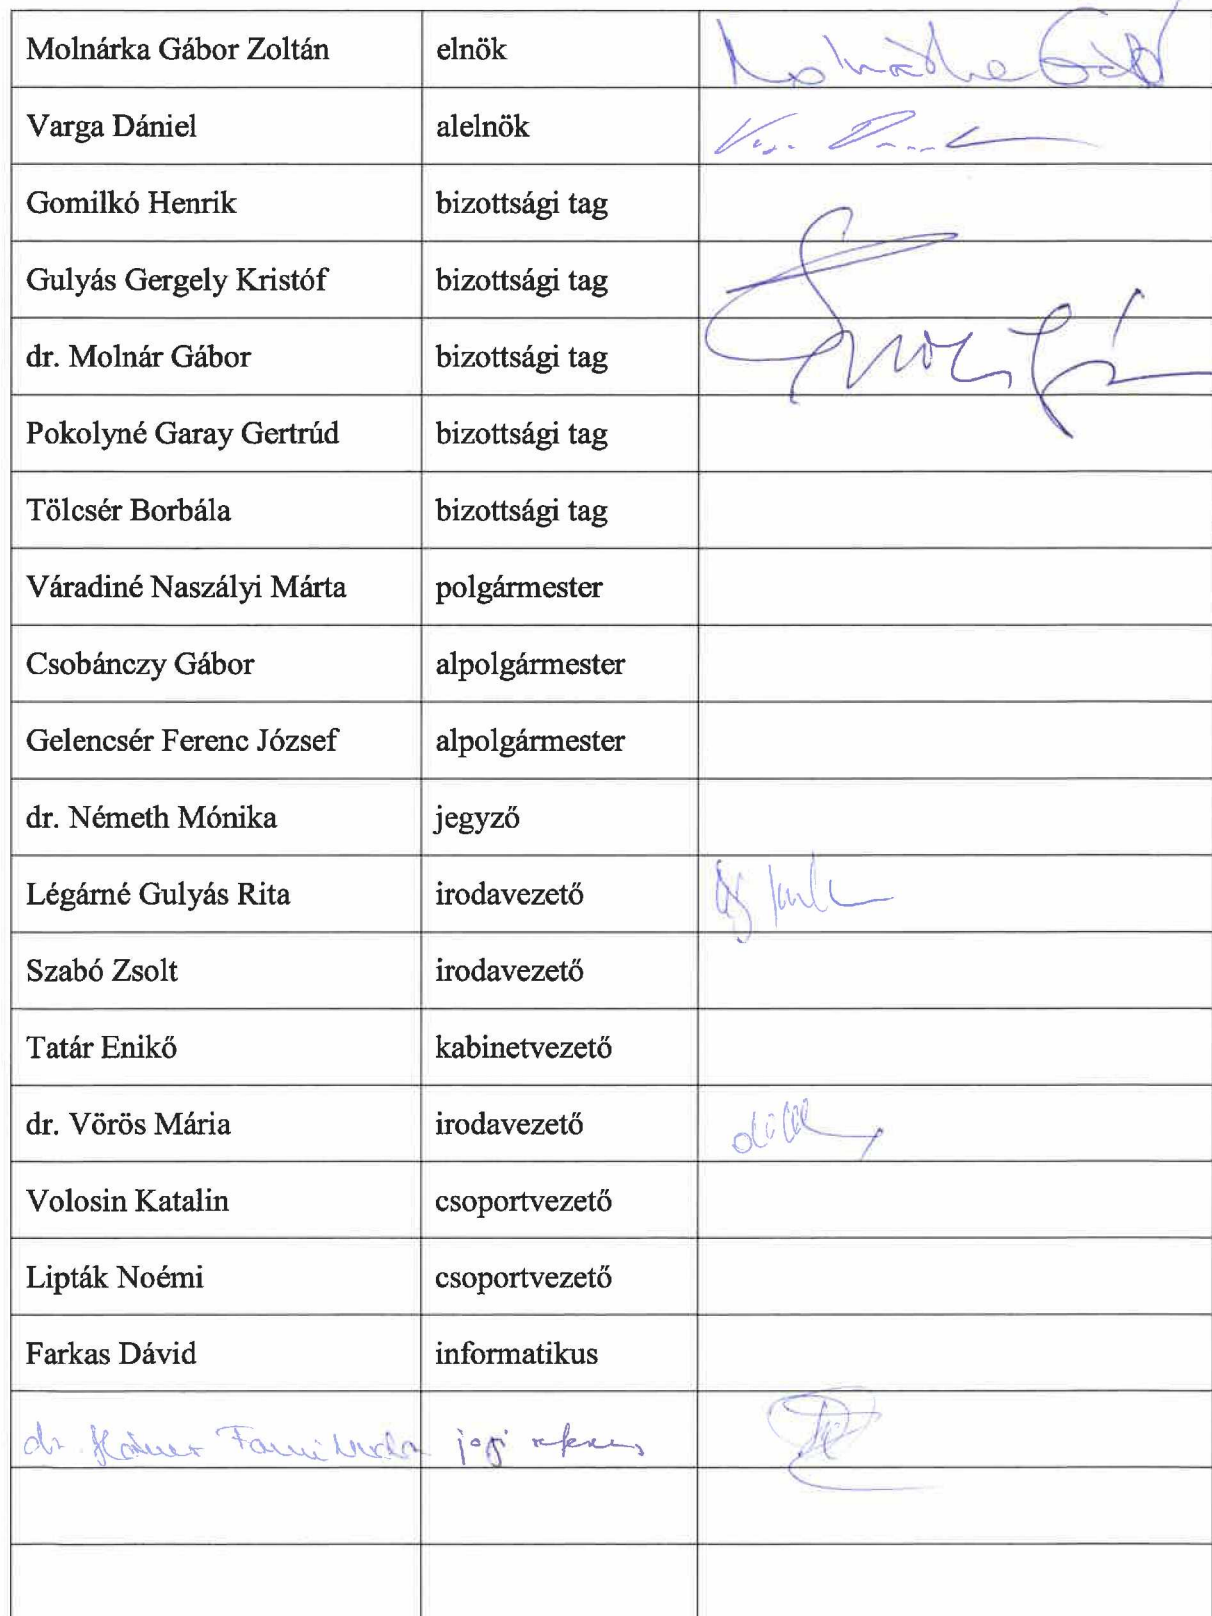 Molnárka Gábor Zoltán elnök Molnárka Gábor
Varga Dániel alelnök
Gomilkó Henrik bizottsági tag
Gulyás Gergely Kristóf bizottsági tag
dr. Molnár Gábor bizottsági tag
Pokolyné Garay Gertrúd bizottsági tag
Tölcsér Borbála bizottsági tag
Váradiné Naszályi Márta polgármester
Csobánczy Gábor alpolgármester
Gelencsér Ferenc József alpolgármester
dr. Németh Mónika jegyző
Légárné Gulyás Rita irodavezető
Szabó Zsolt irodavezető
Tatár Enikő kabinetvezető
dr. Vörös Mária irodavezető
Volosin Katalin csoportvezető
Lipták Noémi csoportvezető
Farkas Dávid informatikus
dr. jogi